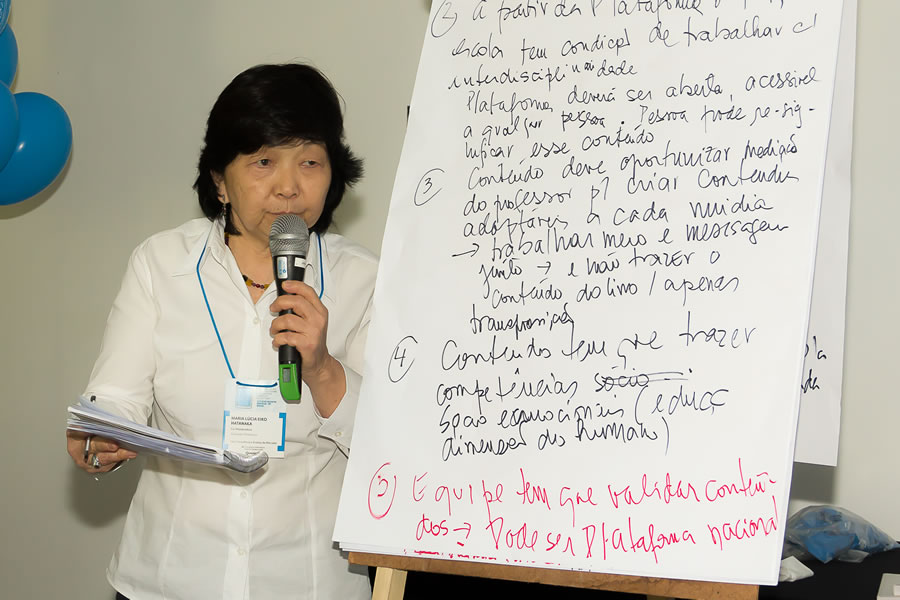 2 A partir da Plataforma
escola tem condições de trabalhar c/
interdisciplinaridade
Plataforma, deverá ser aberta, acessível
a qualquer pessoa. Pessoa pode re-sig-
nificar esse conteúdo
3 Conteúdo deve oportunizar mediação
do professor p/ criar conteúdos
adaptáveis a cada mídia
→ trabalhar meio e mensagem
junto → e não trazer o
conteúdo do livro / apenas
transposição
4 Conteúdos tem que trazer
competências socio
socio emocionais (educ
dimensão do humano)
5 Equipe tem que validar conteú-
dos → Pode ser Plataforma nacional
MARIA LUCIA
HATANAKA